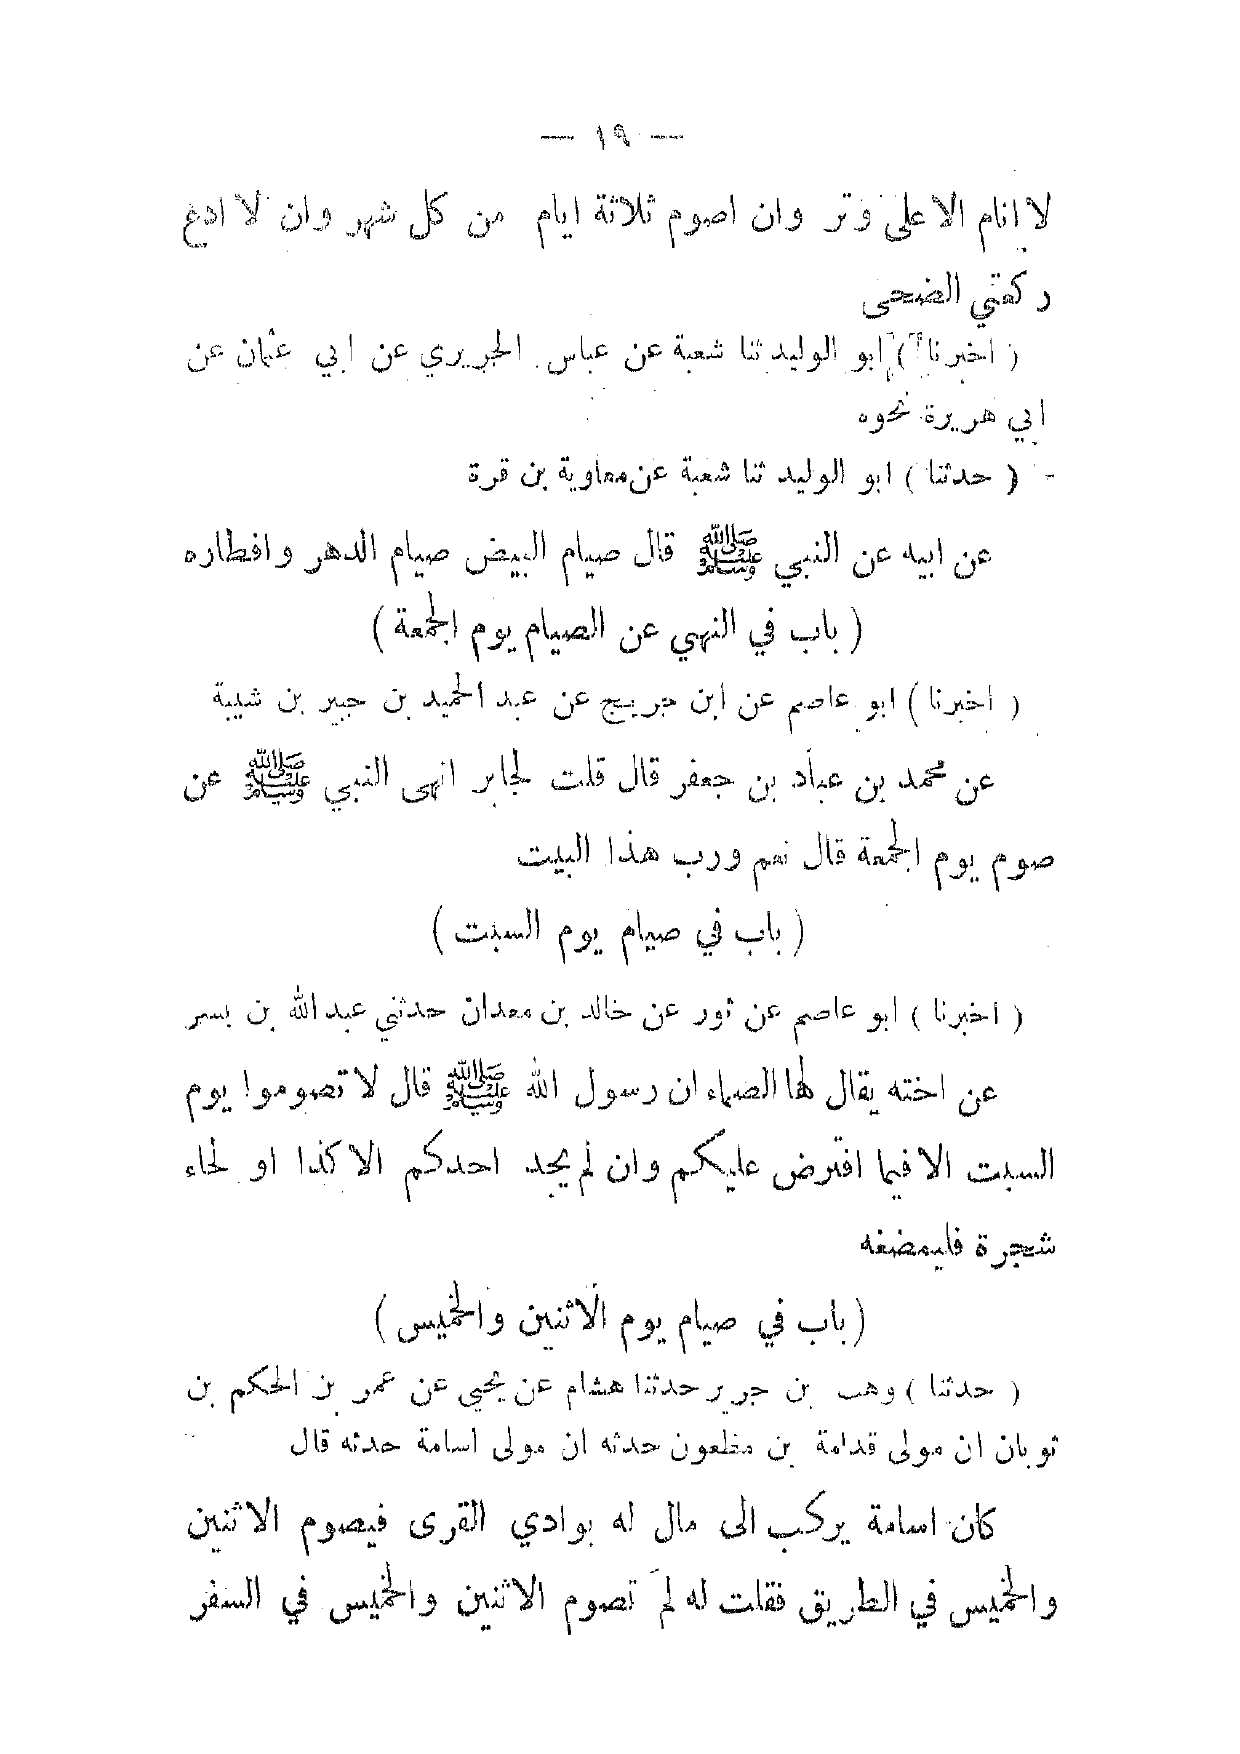 — ١٩ —
لا انام الا على وتر وان اصوم ثلاثة ايام من كل شهر وان لا ادع
ركعتي الضحى
( اخبرنا ) ابو الوليد ثنا شعبة عن عباس الجريري عن ابي عثمان عن
ابي هريرة نحوه
- ( حدثنا ) ابو الوليد ثنا شعبة عن معاوية بن قرة
عن ابيه عن النبي ﷺ قال صيام البيض صيام الدهر وافطاره
( باب في النهي عن الصيام يوم الجمعة )
( اخبرنا ) ابو عاصم عن ابن جريج عن عبد الحميد بن جبير بن شيبة
عن محمد بن عباد بن جعفر قال قلت لجابر انهى النبي ﷺ عن
صوم يوم الجمعة قال نعم ورب هذا البيت
( باب في صيام يوم السبت )
( اخبرنا ) ابو عاصم عن ثور عن خالد بن معدان حدثني عبد الله بن بسر
عن اخته يقال لها الصماء ان رسول الله ﷺ قال لا تصوموا يوم
السبت الا فيما افترض عليكم وان لم يجد احدكم الا كذا او لحاء
شجرة فليمضغه
( باب في صيام يوم الاثنين والخميس )
( حدثنا ) وهب بن جرير حدثنا هشام عن يحيى عن عمر بن الحكم بن
ثوبان ان مولى قدامة بن مظعون حدثه ان مولى اسامة حدثه قال
كان اسامة يركب الى مال له بوادي القرى فيصوم الاثنين
والخميس في الطريق فقلت له لم تصوم الاثنين والخميس في السفر